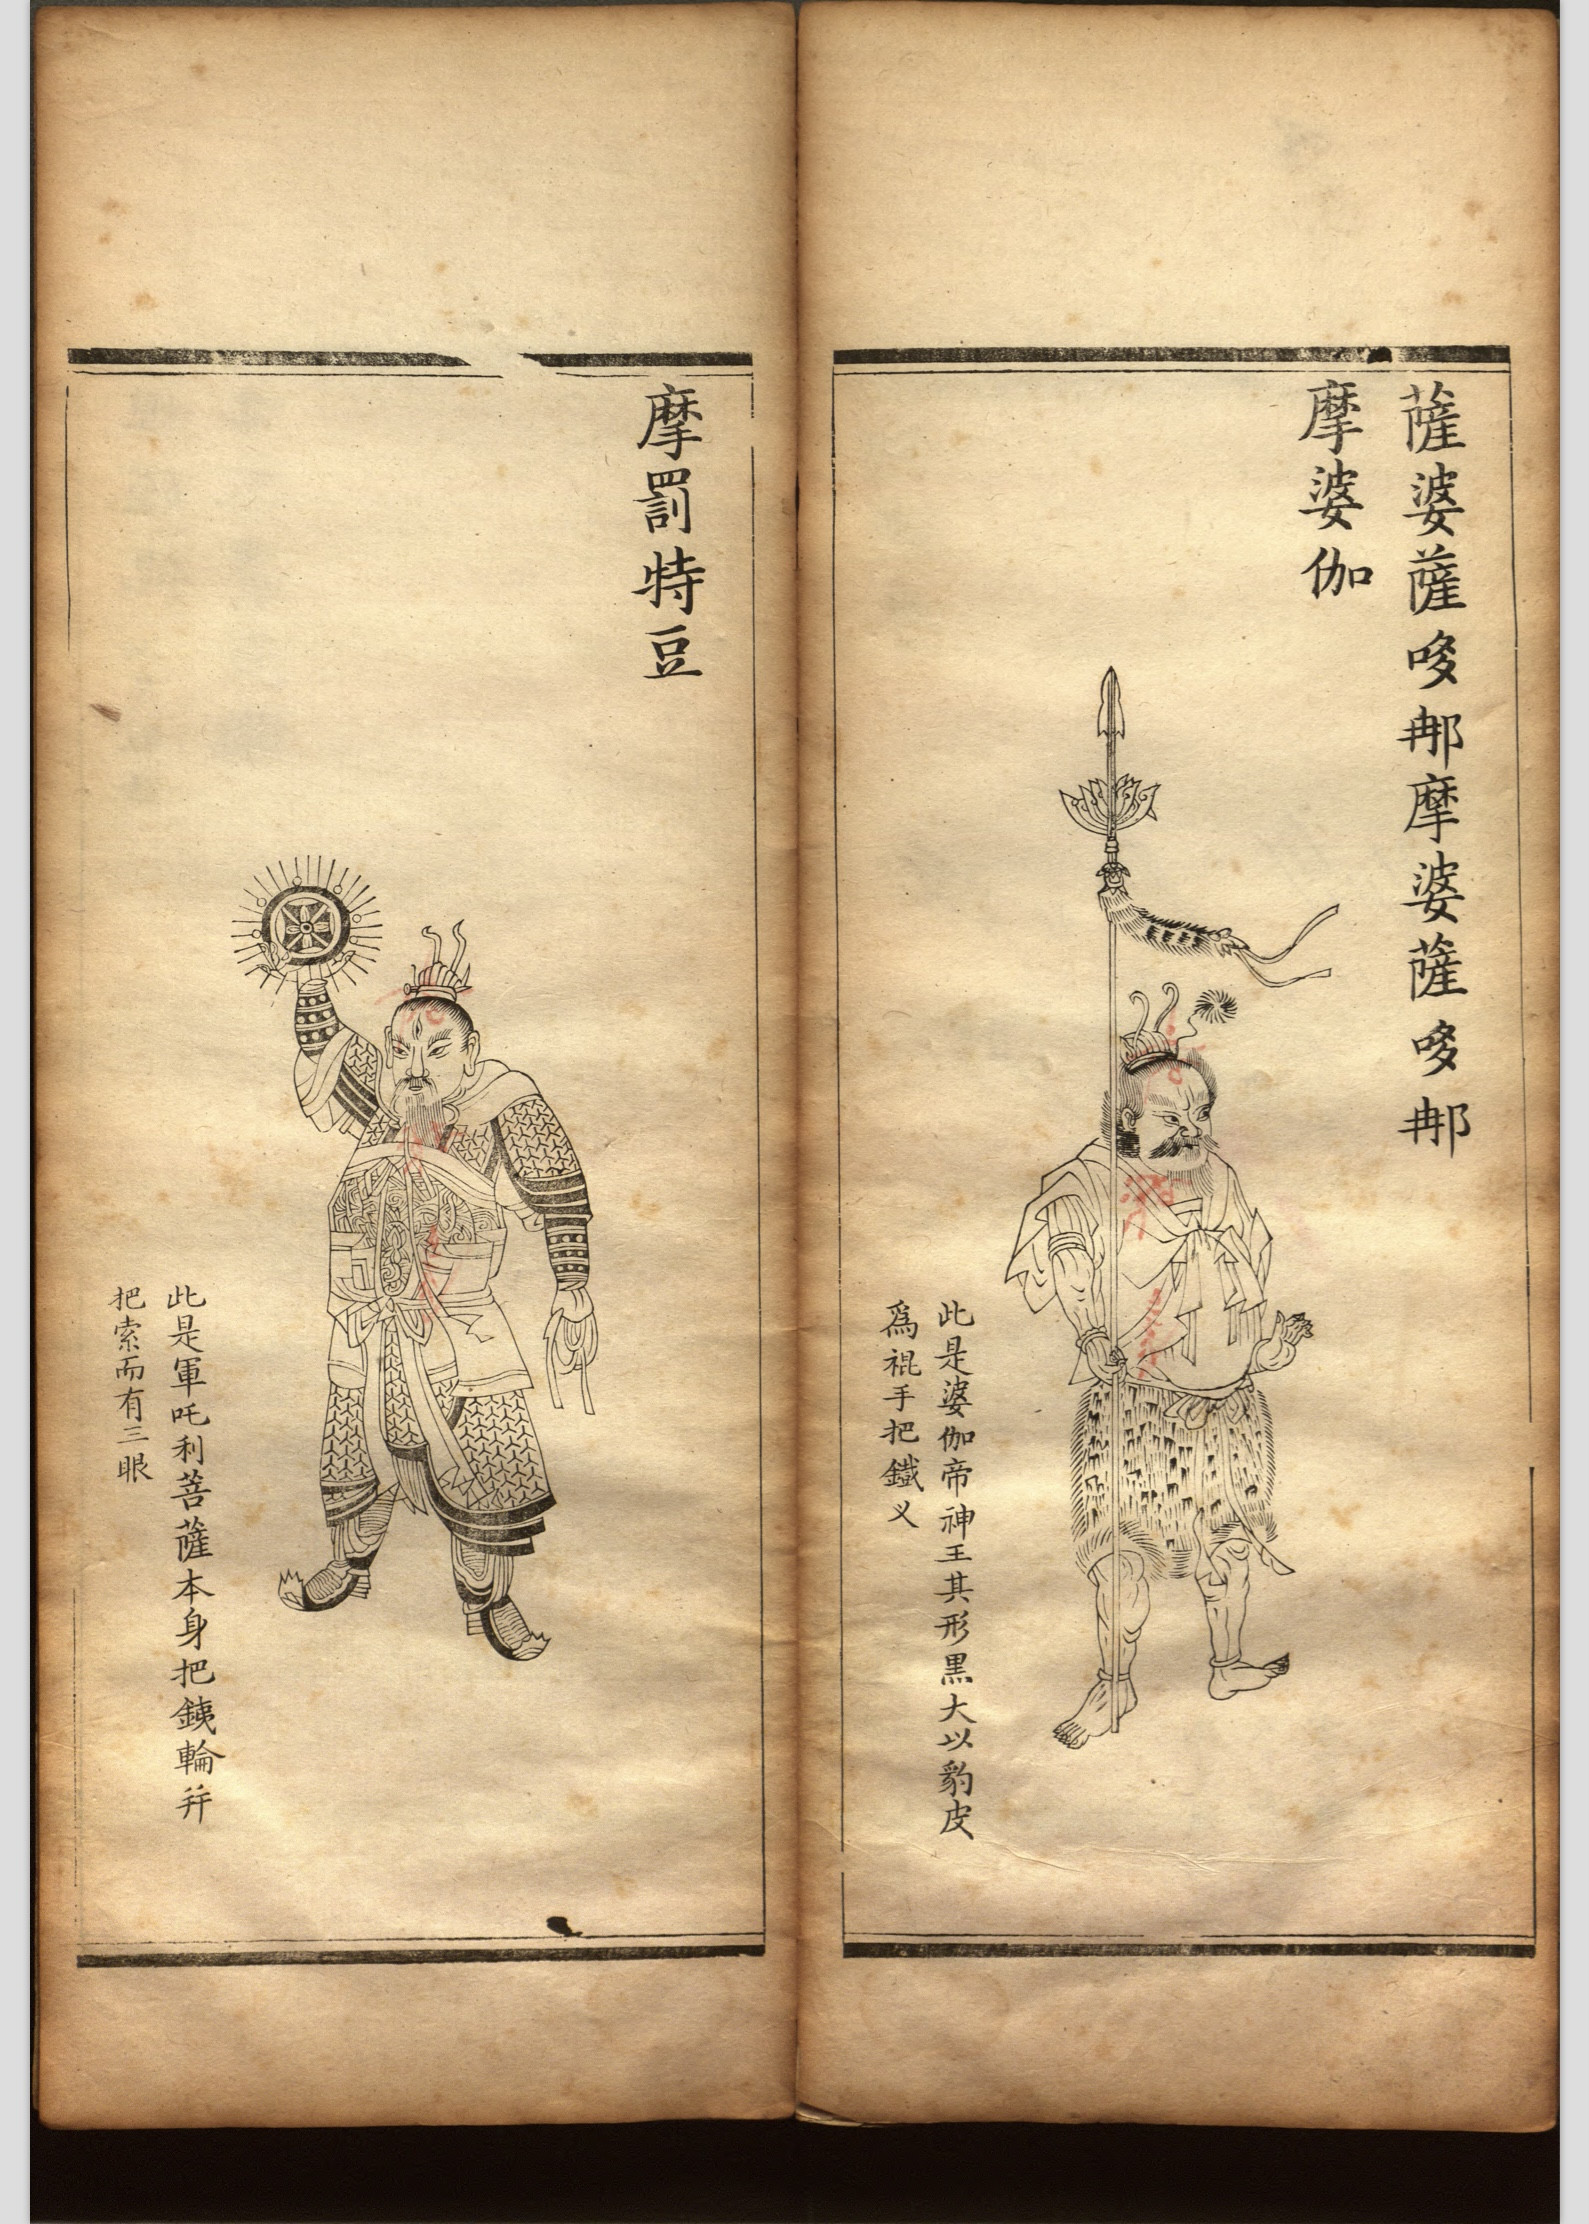 薩婆薩哆𨚗摩婆薩哆𨚗
摩婆伽
此是婆伽帝神王其形黒大以豹皮
爲裩手把鐵义
摩罰特豆
此是軍吒利菩薩本身把銕輪并
把索而有三眼